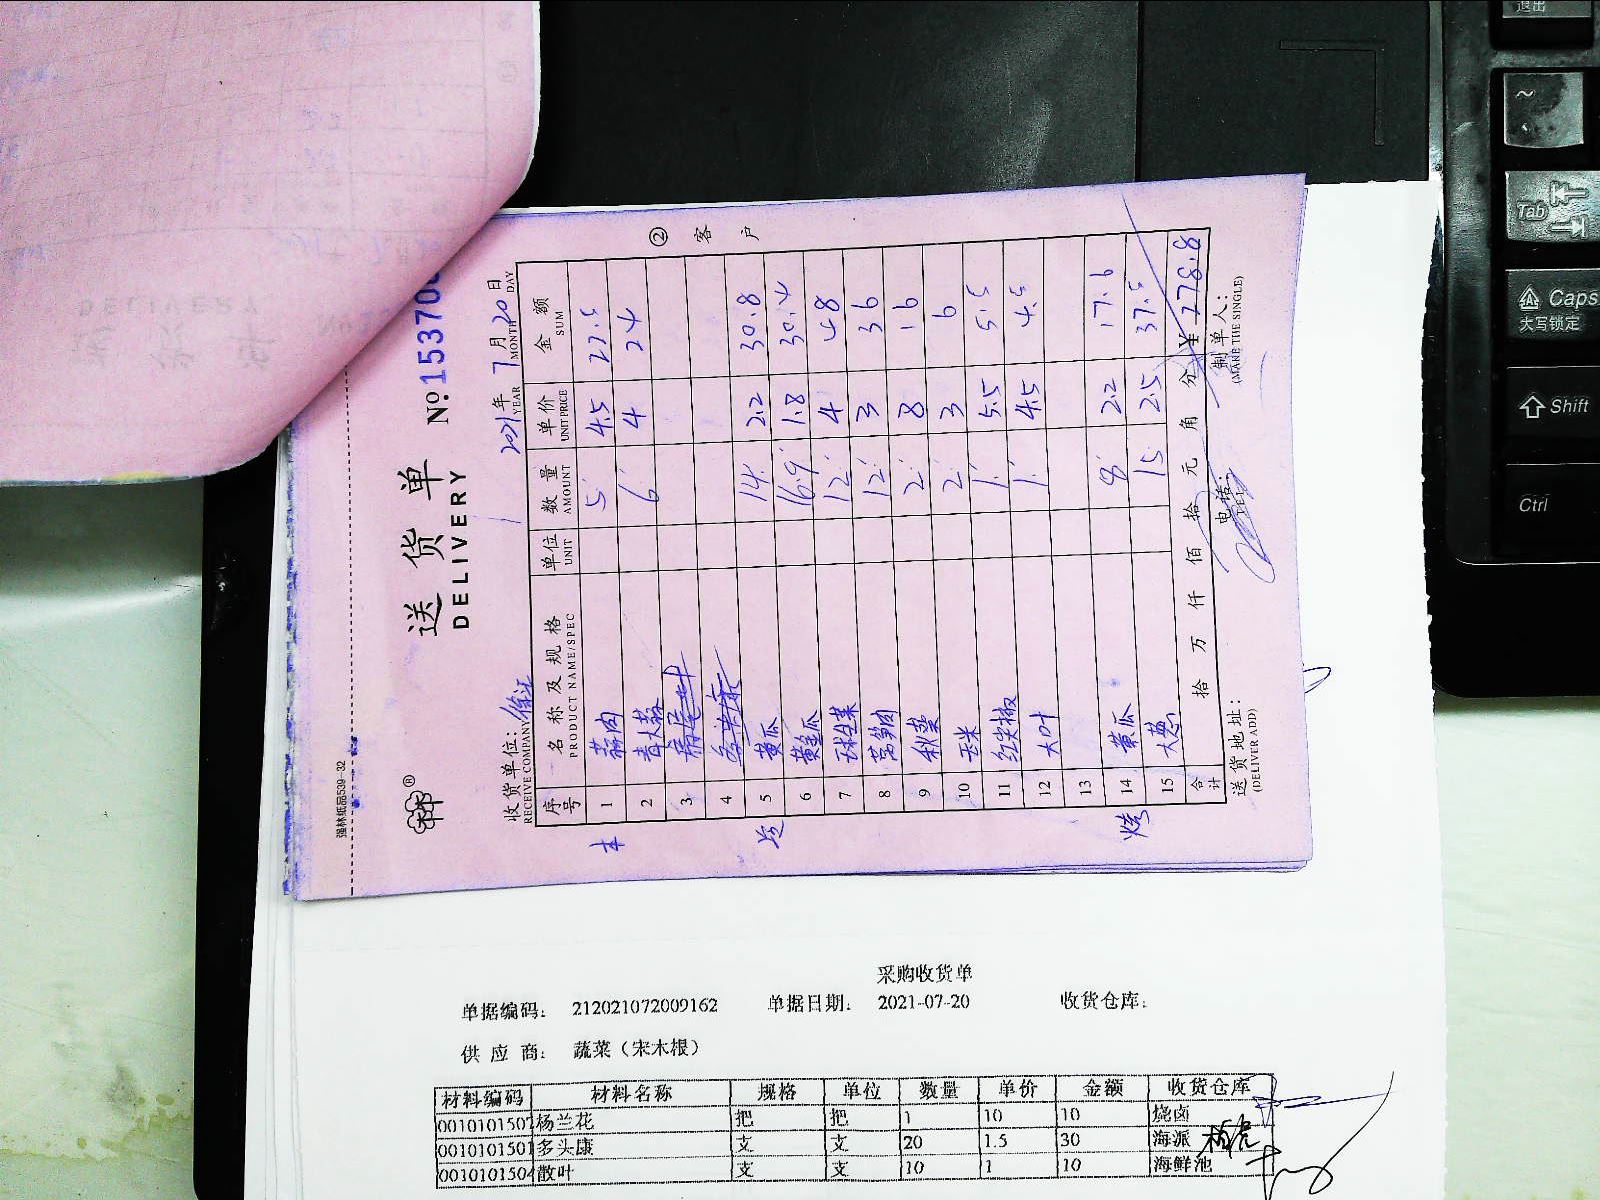 强林纸品539-32
送货单
DELIVERY
№15370
收货单位:
RECEIVE COMPANY
2021年 7月 20日
YEAR MONTH DAY
② 客户
序号 名称及规格 单位 数量 单价 金额
PRODUCT NAME/SPEC UNIT AMOUNT UNIT PRICE SUM
1 蒜肉 5 4.5 22.5
2 青大蒜 6 4 24
3
4
5 黄瓜 14 2.2 30.8
6 黄金瓜 16.9 1.8 30.4
7 球生菜 12 4 48
8 莴笋肉 12 3 36
9 秋葵 2 8 16
10 玉米 2 3 6
11 红尖椒 1 5.5 5.5
12 大叶 1 4.5 4.5
13
烤 14 黄瓜 8 2.2 17.6
15 大葱 15 2.5 37.5
合计 拾 万 仟 佰 拾 元 角 分 ¥278.8
送货地址: 电话: 制单人:
(DELIVER ADD) (TEL) (MAKE THE SINGLE)
采购收货单
单据编码: 212021072009162 单据日期: 2021-07-20 收货仓库:
供应商: 蔬菜(宋木根)
材料编码 材料名称 规格 单位 数量 单价 金额 收货仓库
0010101507 杨兰花 把 把 1 10 10 烧卤
0010101501 多头康 支 支 20 1.5 30 海派
0010101504 散叶 支 支 10 1 10 海鲜池
退出
~
Tab
Caps
大写锁定
Shift
Ctrl